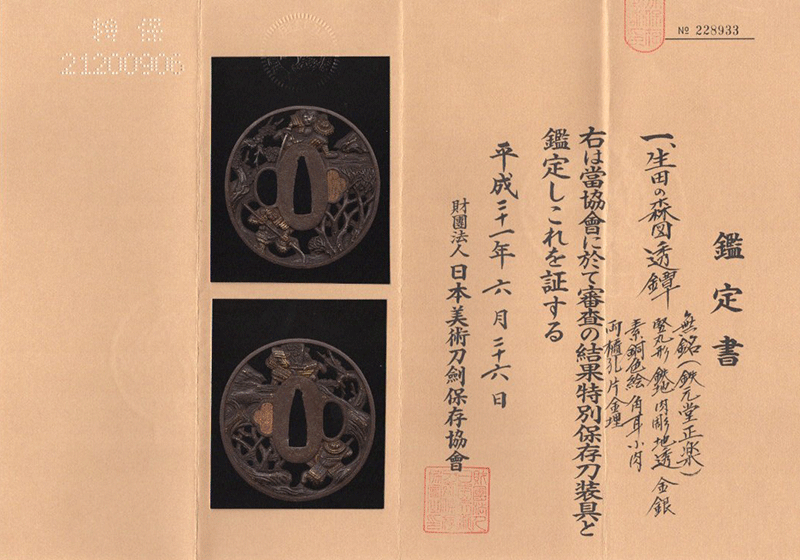 № 228933
鑑定書
一、生田の森図透鐔
無銘(鉄元堂正楽)
竪丸形 鉄地 肉彫地透 金銀
素銅色絵 角耳小肉
両櫃孔片金埋
右は當協會に於て審査の結果特別保存刀装具と
鑑定しこれを証する
平成二十一年六月二十六日
財團法人 日本美術刀劍保存協會
21200906